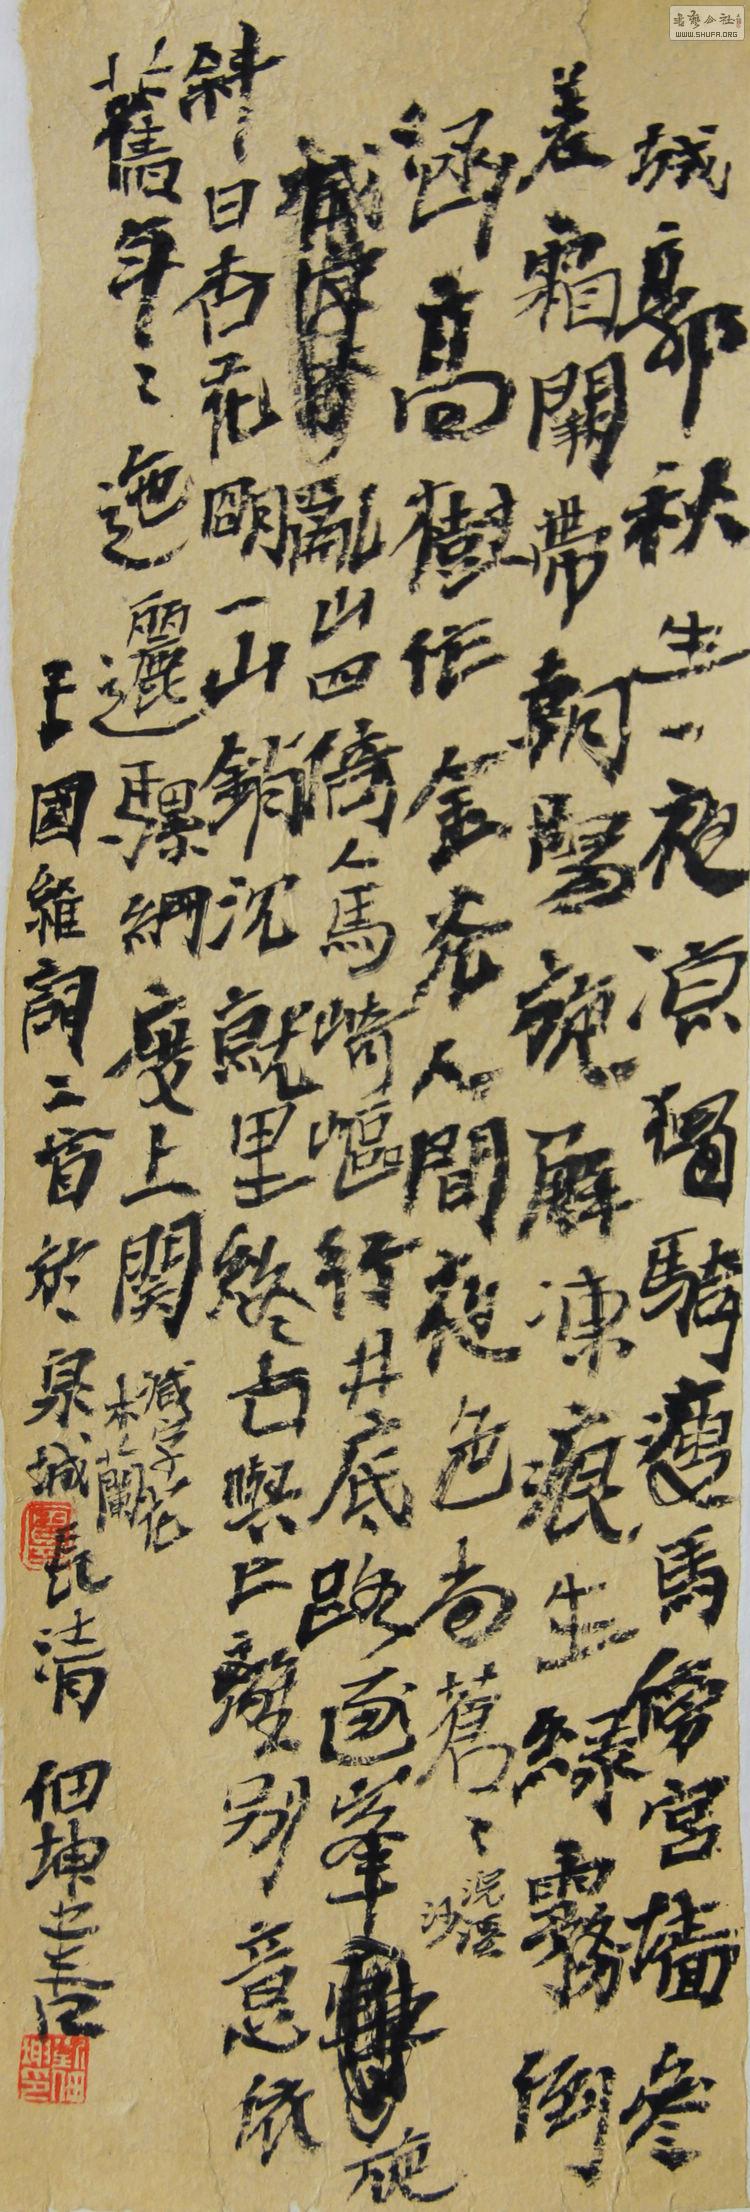 書藝公社
WWW.SHUFA.ORG
城郭秋生一夜凉獨騎瘦馬傍宮墙參
差霜闕帶朝陽旋解凍痕生緑霧倒
涵高樹作金光人間夜色尚蒼〻
浣溪沙
亂山四倚人馬崎嶇行井底路逐峯旋
斜日杏花明一山銷沉就里終古興亡離别意依
舊年〻迤邐騾綱度上関
減字木蘭花
王國維詞二首於泉城長清佃坤書